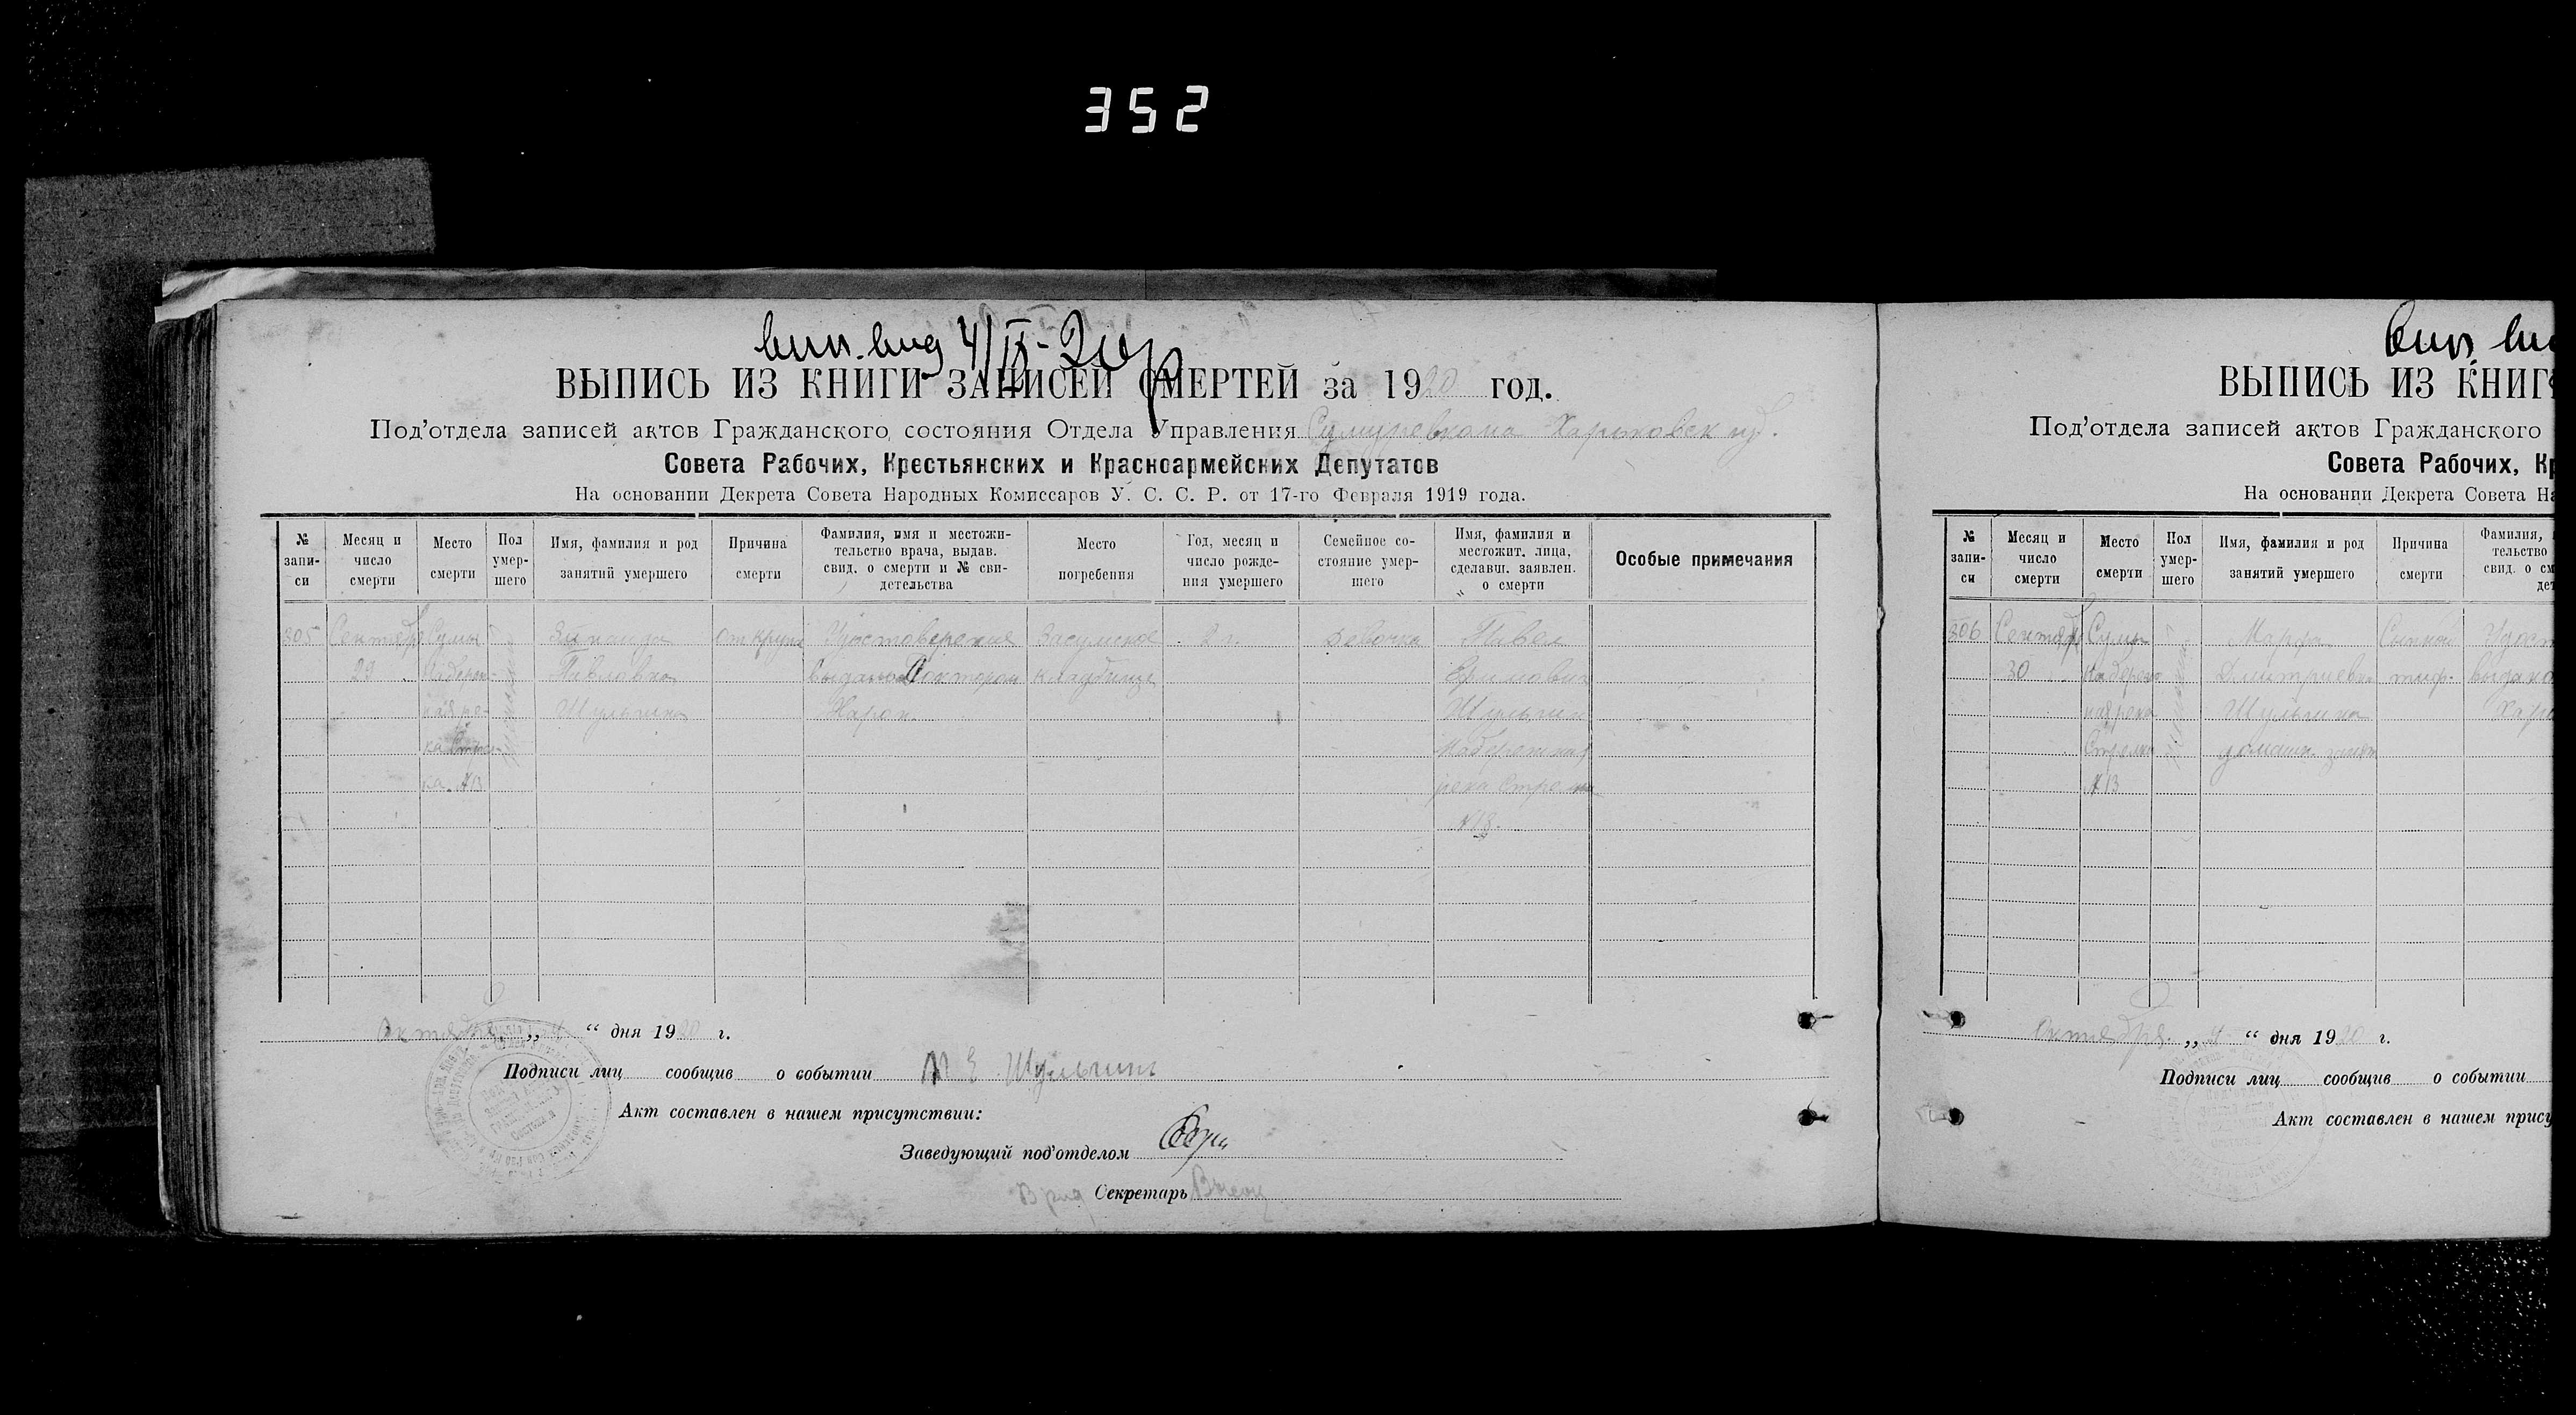 352
вип. вид 4/IX-20 р
ВЫПИСЬ ИЗ КНИГИ ЗАПИСЕЙ СМЕРТЕЙ за 1920 год.
Под'отдела записей актов Гражданского состояния Отдела Управления Сумуревкома Харьковск губ.
Совета Рабочих, Крестьянских и Красноармейских Депутатов
На основании Декрета Совета Народных Комиссаров У. С. С. Р. от 17-го Февраля 1919 года.
№ запи-си
Месяц и число смерти
Место смерти
Пол умер-шего
Имя, фамилия и род занятий умершего
Причина смерти
Фамилия, имя и местожи-тельство врача, выдав. свид. о смерти и № сви-детельства
Место погребения
Год, месяц и число рожде-ния умершего
Семейное со-стояние умер-шего
Имя, фамилия и местожит. лица, сделавш. заявлен. о смерти
Особые примечания
305 Сентябр Сумы Зинаида от крупа Удостоверение Засумское 2 г. Девочка Павел
29 Набереж- Павловна выдано Доктором кладбище Ефимович
ная ре- Шульгина Шульгин
ка Стрел- Набережная
ка №13 река Стрелка
№13.
Октября „ 4 “ дня 1920 г.
Подписи лиц сообщив о событии П Е Шульгинъ
Акт составлен в нашем присутствии:
Заведующий под'отделом
Врид Секретарь
вип. ви
ВЫПИСЬ ИЗ КНИГ
Под'отдела записей актов Гражданского
Совета Рабочих, Кр
На основании Декрета Совета На
№ запи-си
Месяц и число смерти
Место смерти
Пол умер-шего
Имя, фамилия и род занятий умершего
Причина смерти
Фамилия, тельство свид. о см дет
306 Сентябр Сумы Марфа Сыпной Удост
30 Набереж Дмитриевна тиф. выдано
ная река Шульгина
Стрелка домашн. занят
№13
Октября „ 4 “ дня 1920 г.
Подписи лиц сообщив о событии
Акт составлен в нашем прису